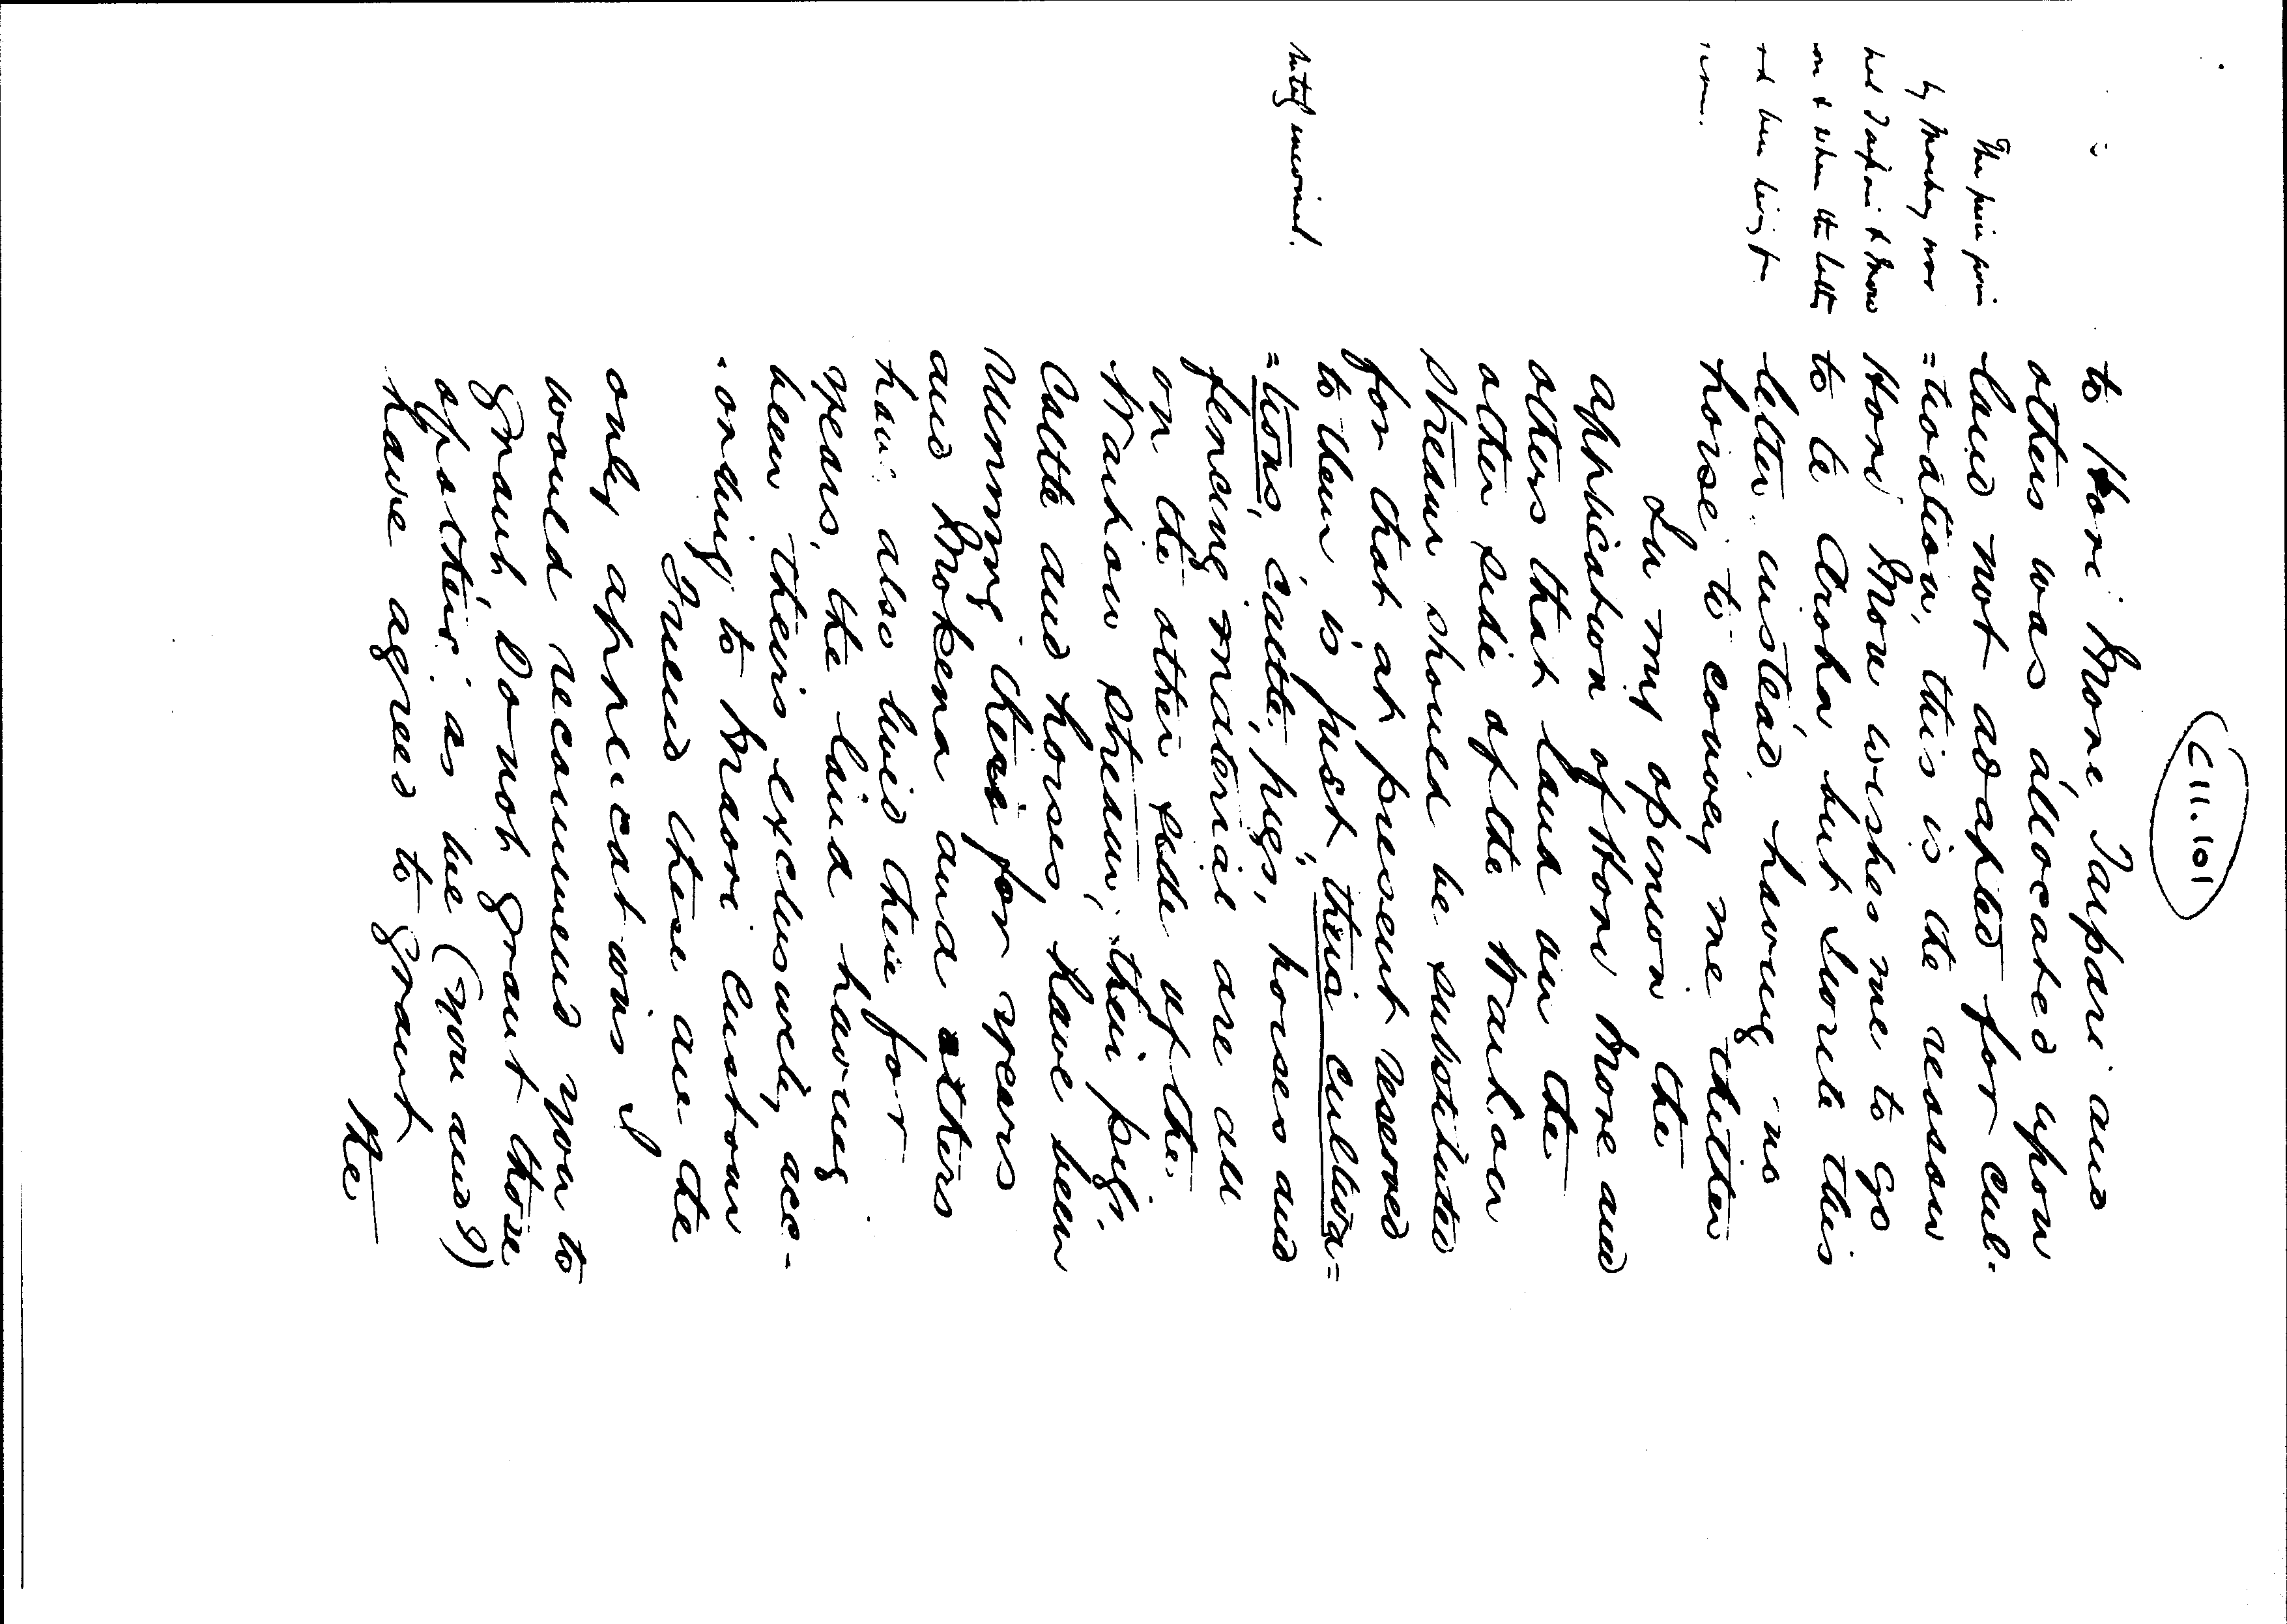 (111.101)
to Hori More Taipari and
others was allocated upon
land not adapted for cul-
=tivation, this is the reason
Hori More wishes me to go
to Te Aroha, but I write this
letter instead, having no
horse to convey me thither
In my opinion the
application of Hori More and
others that land on the
other side of the Waihou
stream should be substituted
for that at present reserved
to them is just their cultiva=
=tions, cattle, pigs, horses and
fencing material are all
on the other side of the
Waihou stream, their pigs,
Cattle and horses, have been
running there for years
and Mokena and others
have also lived there for
years, the land having
been theirs exclusively acc-
-ording to Maori Custom
Friend these are the
only applications I
would recommend you to
grant, do not grant those
of others as we (you and I)
have agreed to grant
the
by Mackay was
Taipari &
on & when the letter
been living